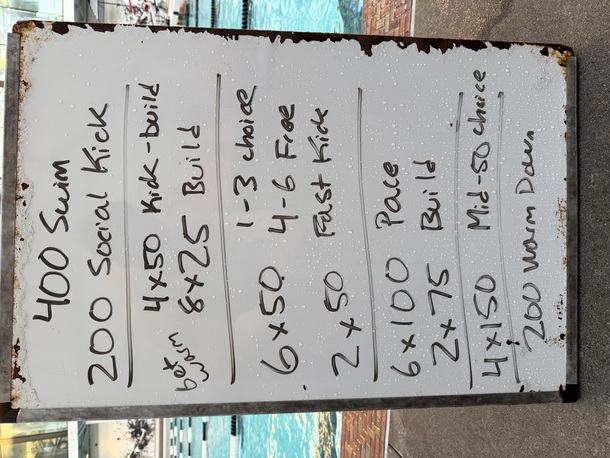 400 Swim
200 Social Kick
4x50 Kick-build
8x25 Build
6x50 1-3 choice
4-6 Free
2x50 Fast Kick
6x100 Pace
2x75 Build
4x150 Mid-50 choice
200 Warm Down